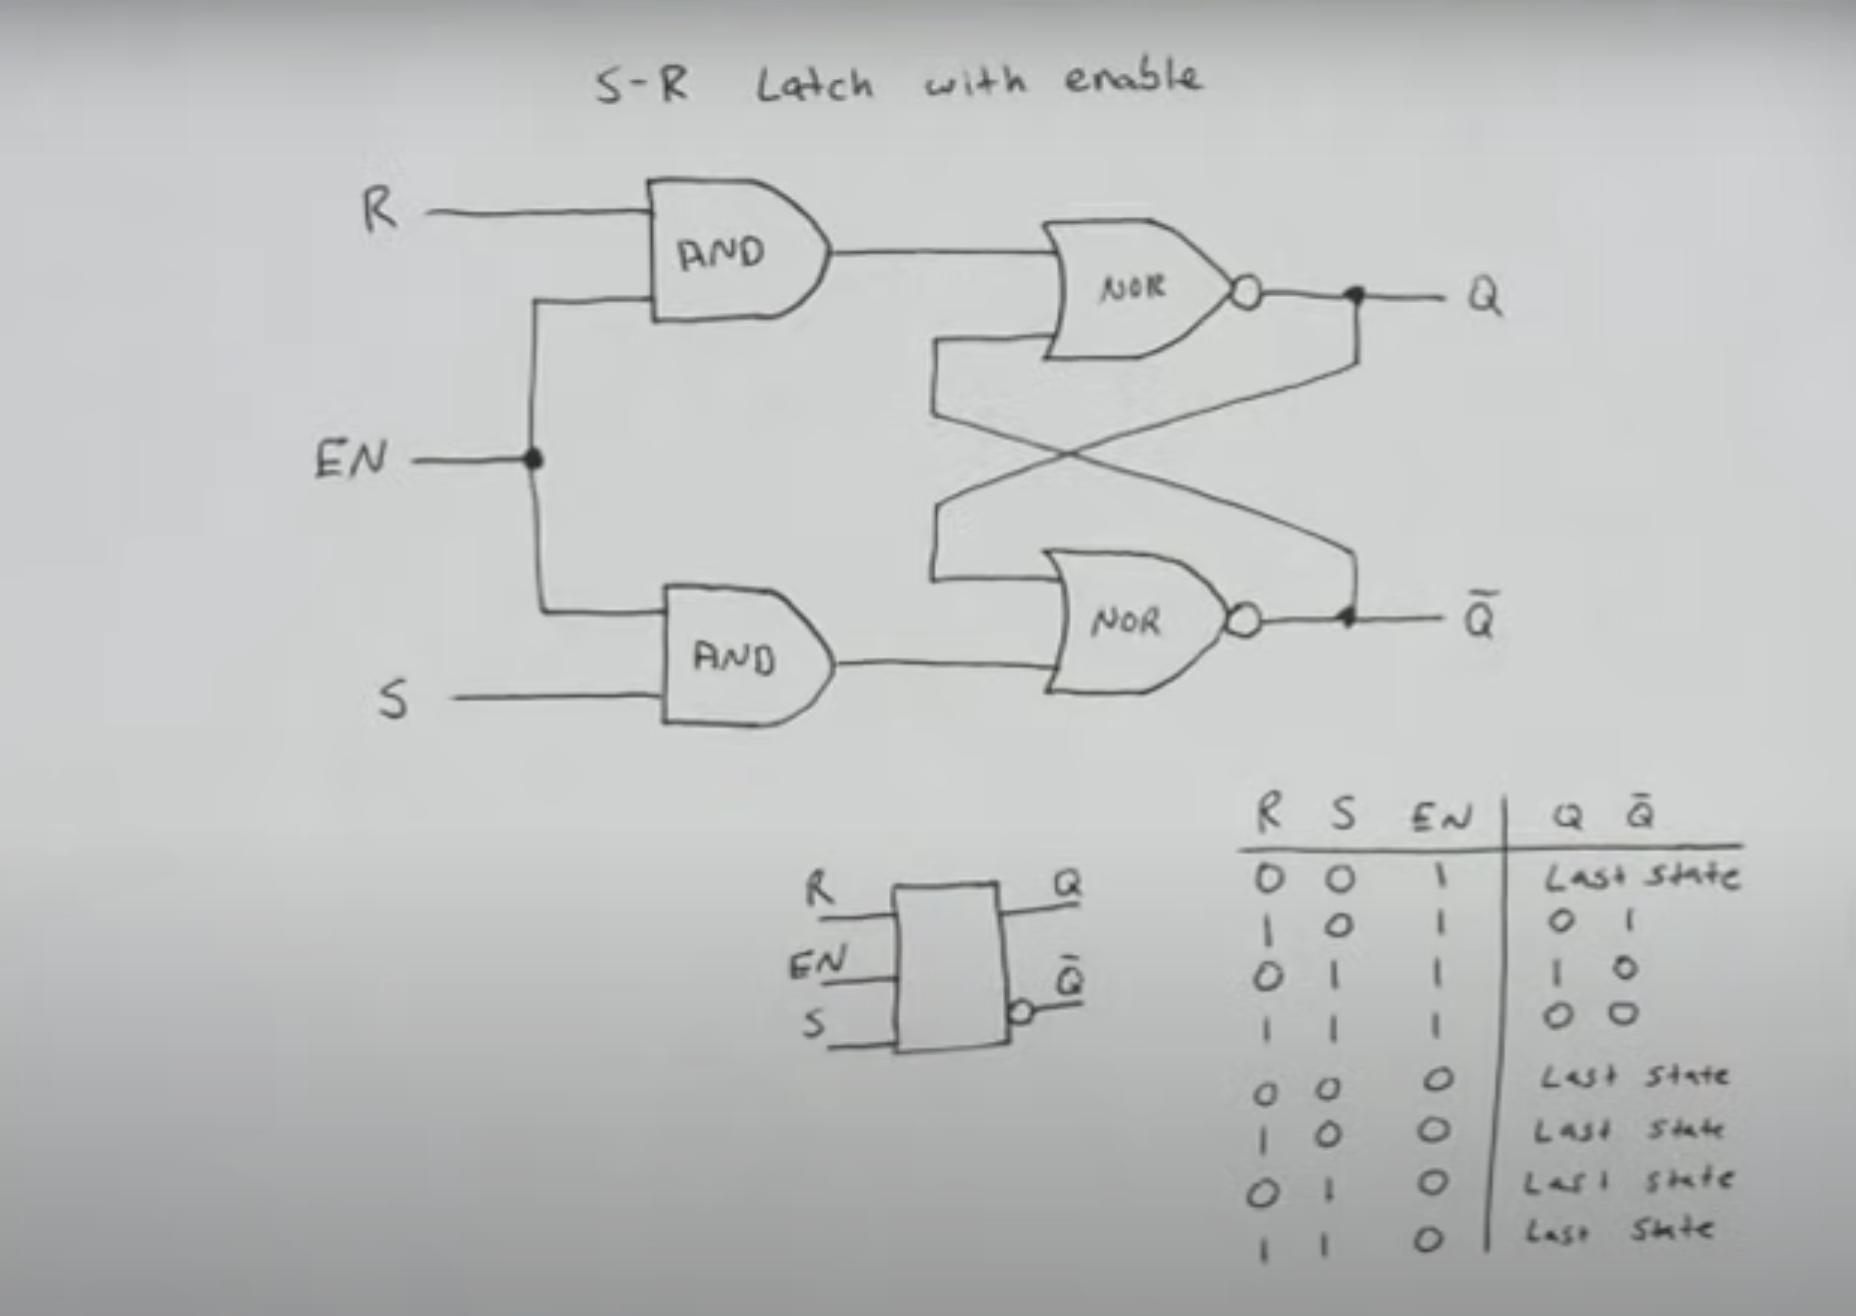 S-R Latch with enable
R
AND
NOR
Q
EN
NOR
Q̄
AND
S
R S EN Q Q̄
0 0 1 Last state
1 0 1 0 1
0 1 1 1 0
1 1 1 0 0
0 0 0 Last state
1 0 0 Last state
0 1 0 Last state
1 1 0 Last state
R Q
EN Q̄
S